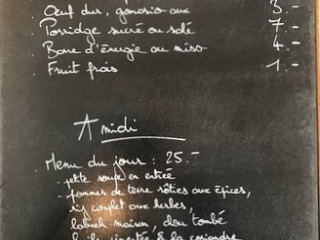 Œuf dur, gomasio aux 3.-
. Porridge sucré ou salé 7.-
. Barre d'énergie ou miso 4.-
. Fruit frais 1.-
A midi
. Menu du jour : 25.-
petite soupe en entrée
pommes de terre rôties aux épices,
riz complet aux herbes,
labneh maison, dou tombé
à la coriandre